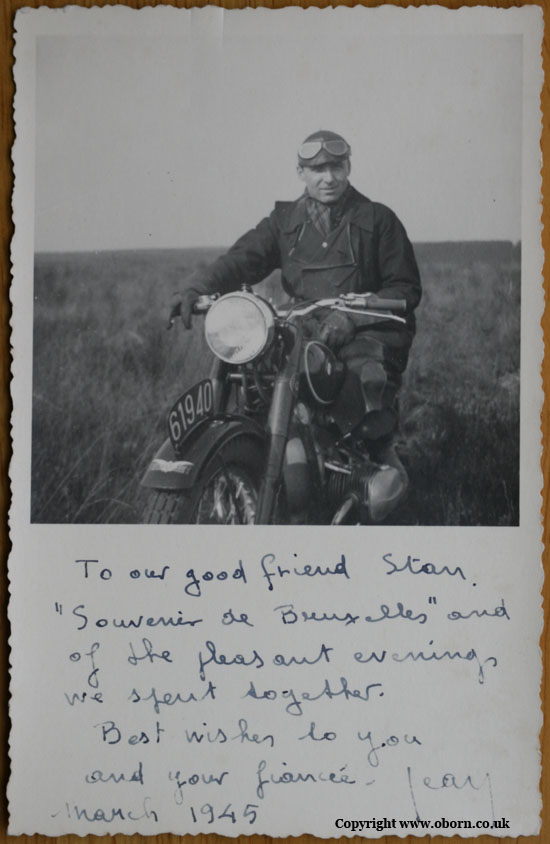 61940
To our good friend Stan.
"Souvenir de Bruxelles" and
of the pleasant evenings
we spent together.
Best wishes to you
and your fiancée - Jean
March 1945
Copyright www.oborn.co.uk